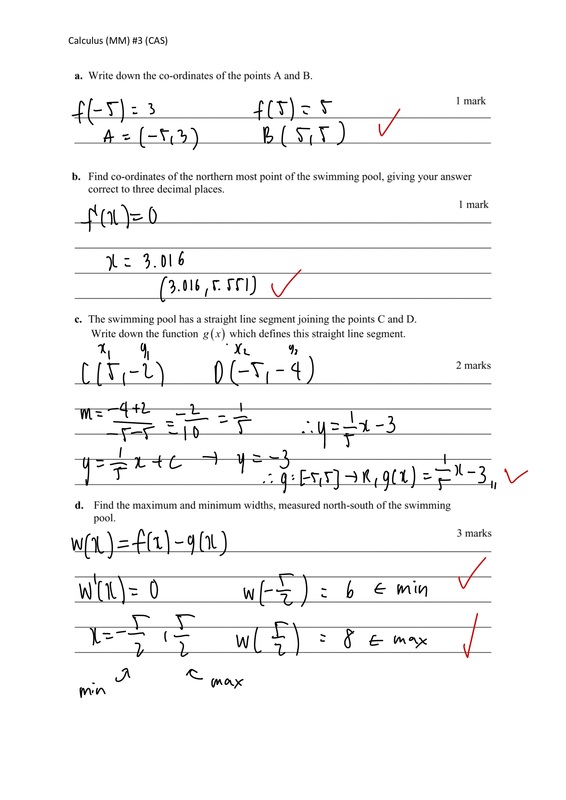 Calculus (MM) #3 (CAS)
a. Write down the co-ordinates of the points A and B.
1 mark
f(-5) = 3 f(5) = 5
A = (-5,3) B(5,5)
b. Find co-ordinates of the northern most point of the swimming pool, giving your answer
correct to three decimal places.
1 mark
f'(x)=0
x = 3.016
(3.016, 5.551)
c. The swimming pool has a straight line segment joining the points C and D.
Write down the function g(x) which defines this straight line segment.
x₁ y₁ x₂ y₂
C(5,-2) D(-5,-4)
2 marks
m = (-4+2)/(-5-5) = -2/10 = 1/5 ∴y=1/5x-3
y = 1/5 x + c → y = -3
∴ g:[-5,5]→R, g(x) = 1/5x-3,,
d. Find the maximum and minimum widths, measured north-south of the swimming
pool.
3 marks
w(x) = f(x) - g(x)
w'(x) = 0 w(-5/2) = 6 ← min
x = -5/2, 5/2 w(5/2) = 8 ← max
min ↗ ↖ max